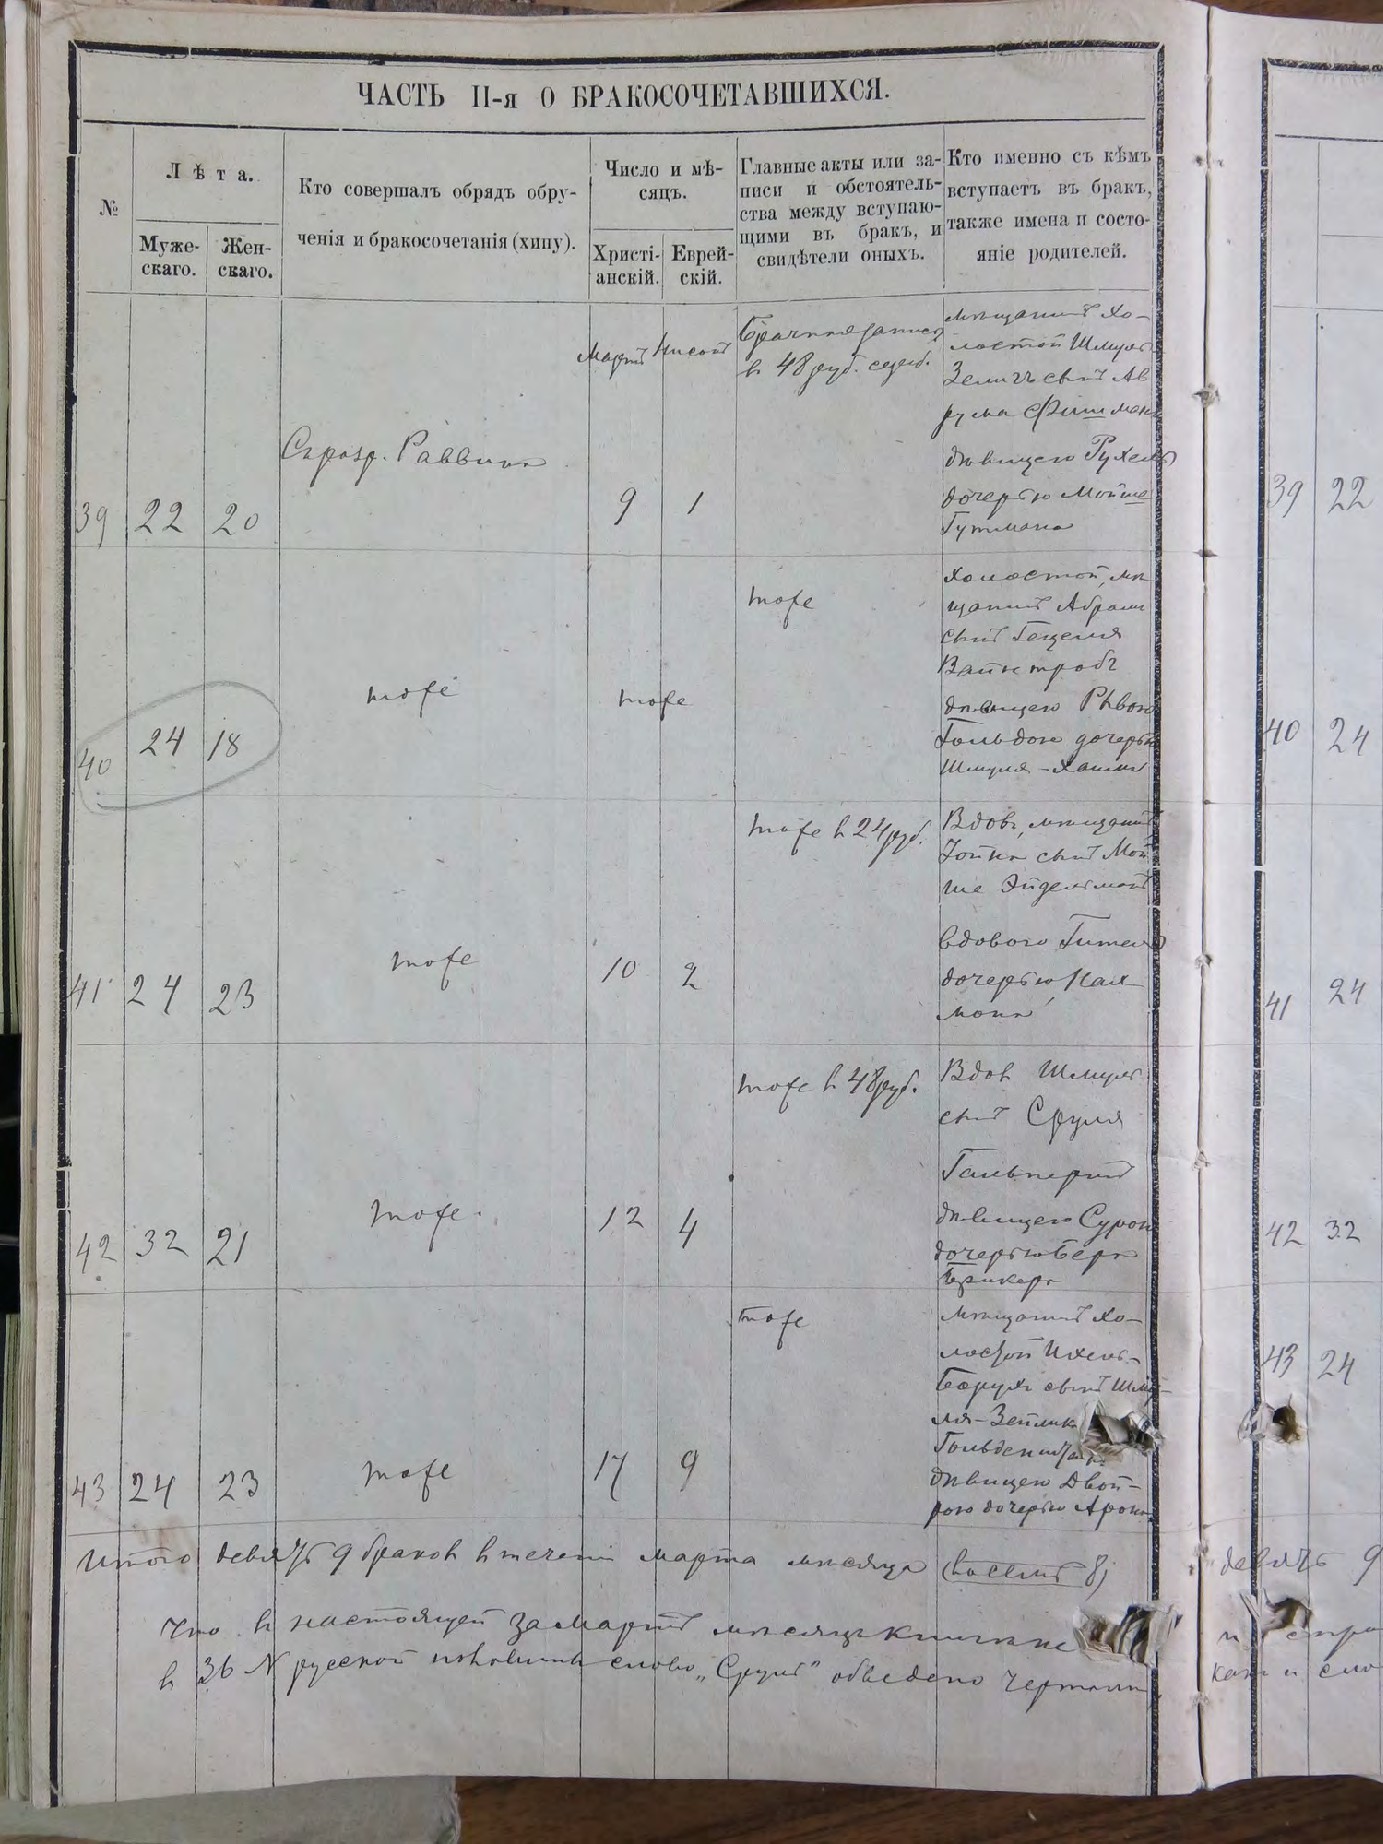 ЧАСТЬ II-я О БРАКОСОЧЕТАВШИХСЯ.
№
Лѣта.
Муже-
скаго.
Жен-
скаго.
Кто совершалъ обрядъ обру-
ченія и бракосочетанія (хипу).
Число и мѣ-
сяцъ.
Христі-
анскій.
Еврей-
скій.
Главные акты или за-
писи и обстоятель-
ства между вступаю-
щими въ бракъ, и
свидѣтели оныхъ.
Кто именно съ кѣмъ
вступаетъ въ бракъ,
также имена и состо-
яніе родителей.
39
22
20
Раввинъ
Мартъ
Нисонъ
9
1
Брачная запись
въ 48 руб. сереб.
мѣщанинъ хо-
лостой Шмуль
сынъ Ав
рума
дѣвицею Рухель
дочерью Мойше
Гутмана
40
24
18
тоже
тоже
тоже
холостой, мѣ
щанинъ Абрам
сынъ Гецеля
Вайнтробъ
дѣвицею Рывкою
Гольдою дочерью
Шмуля-Хаима
41
24
23
тоже
10
2
тоже въ 24 руб.
Вдов, мѣщанинъ
сынъ Мой
ше Эйдельманъ
вдовою Гитель
дочерью Кал-
мона
42
32
21
тоже
12
4
тоже въ 48 руб.
Вдов Шмуль
сынъ Сруля
Гальперинъ
дѣвицею Сурою
дочерью Берк
43
24
23
тоже
17
9
тоже
мѣщанинъ хо-
лостой Ихель-
Борухъ сынъ Шму-
ля-Зейлика
дѣвицею Двой-
рою дочерью Арона
Итого девять 9 браков въ течени марта мѣсяца (восемь 8)
Что в настоящей за Мартъ мѣсяцъ
в 36 № русской слово „Сруль" обведено чертами
39
22
40
24
41
24
42
32
43
24
девять 9